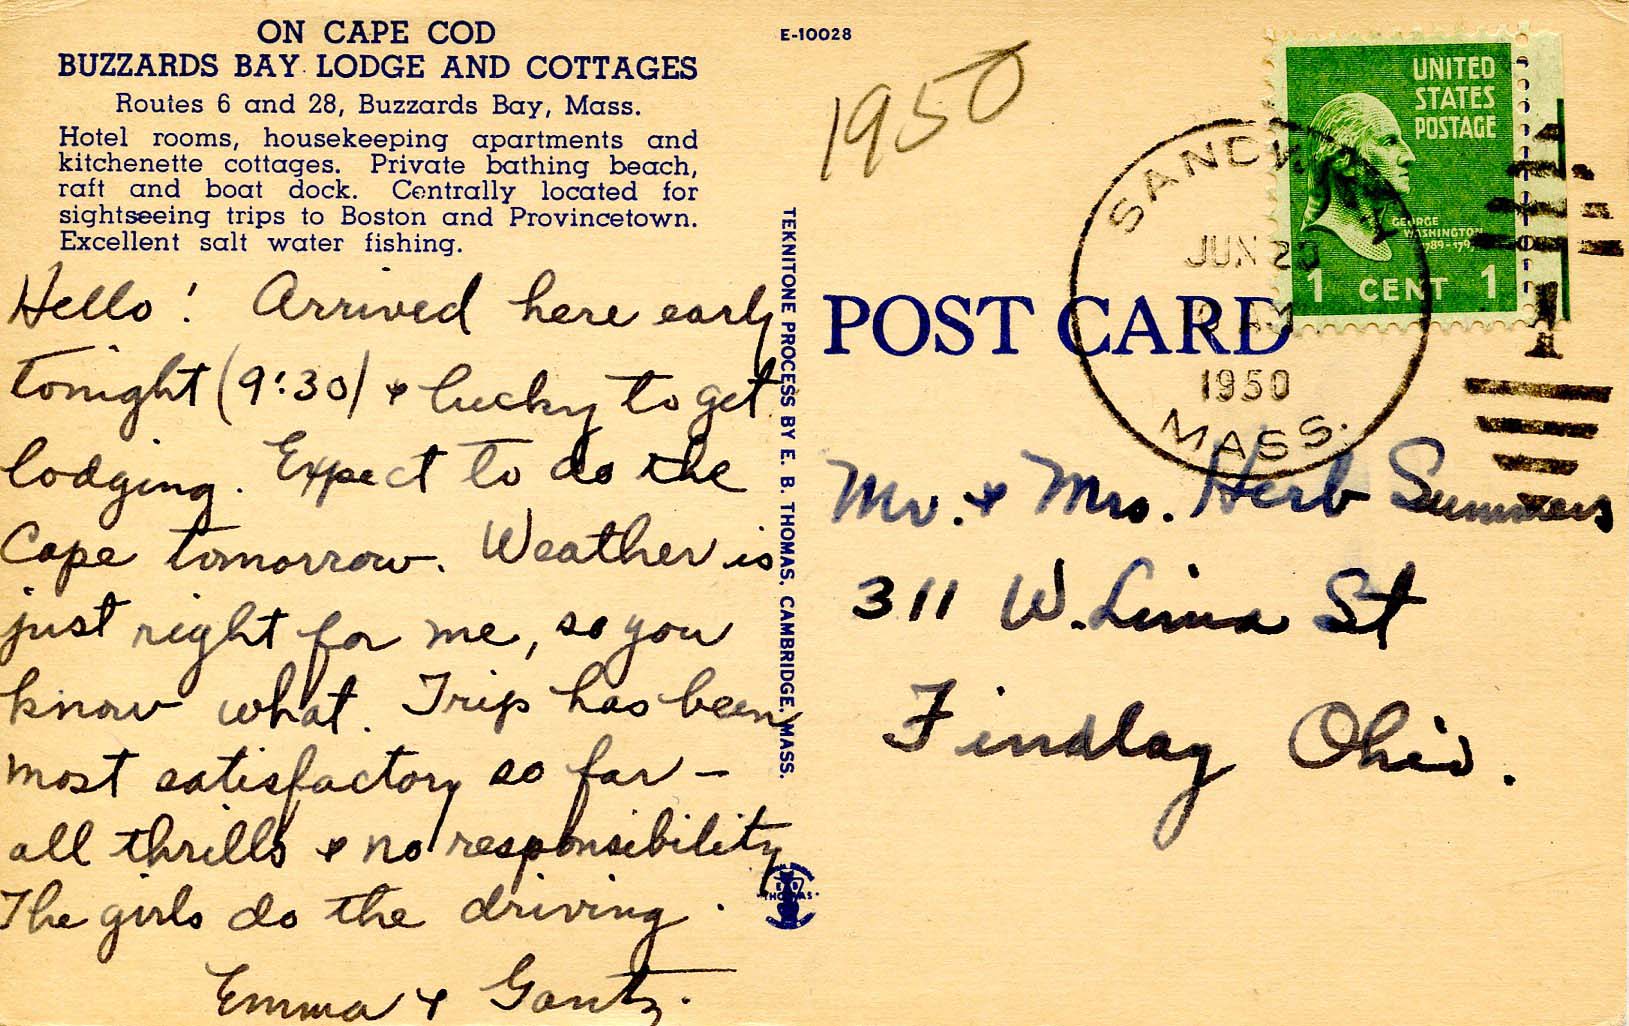 ON CAPE COD
BUZZARDS BAY LODGE AND COTTAGES
Routes 6 and 28, Buzzards Bay, Mass.
Hotel rooms, housekeeping apartments and
kitchenette cottages. Private bathing beach,
raft and boat dock. Centrally located for
sightseeing trips to Boston and Provincetown.
Excellent salt water fishing.
Hello! Arrived here early
tonight (9:30) & lucky to get
lodging. Expect to do the
Cape tomorrow. Weather is
just right for me, so you
know what. Trip has been
most satisfactory so far –
all thrills & no responsibility
The girls do the driving.
Emma & Gantz.
TEKNITONE PROCESS BY E. B. THOMAS, CAMBRIDGE, MASS.
THOMAS
E-10028
1950
UNITED
STATES
POSTAGE
GEORGE
WASHINGTON
1789-1797
1 CENT 1
SANDWICH
JUN
AM
1950
MASS.
POST CARD
Mr. & Mrs. Herb Summers
311 W. Lima St
Findlay Ohio.